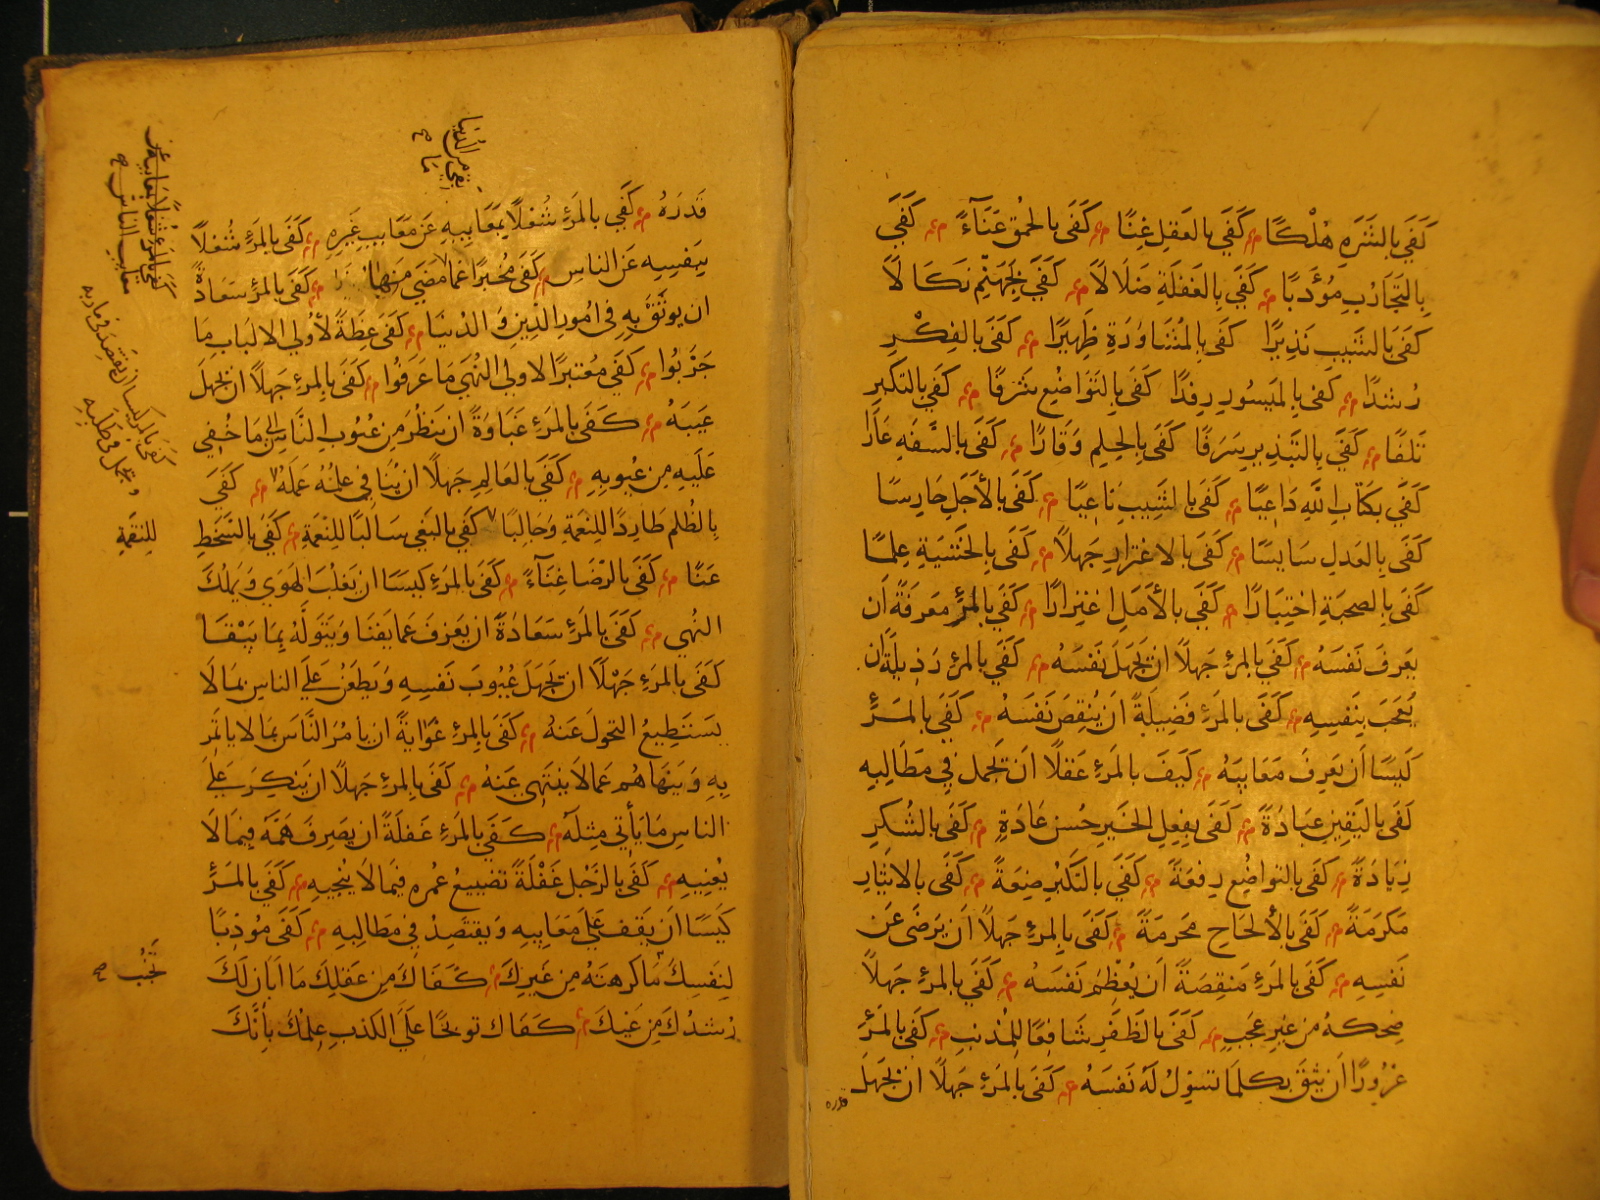 كَفَى بالشَّرَهِ هُلْكًا كَفَى بالعَقلِ غِنًا كَفَى بالحُمْقِ عَنَآءً كَفَى
بِالتَجَارُبِ مُؤَدِبًا كَفَى بِالغَفلَةِ ضَلَالاً كَفَى بِجَهَنَّمِ نَكَالاً
كَفَى بَالشَيبِ نَذِيرًا كَفَى بِالمُشَاوَرَةِ ظَهِيرًا كَفَى بِالفِكْرِ
رُشدًا كَفى بِالمَيسُورِ رِفدًا كَفَى بِالتَوَاضُعِ شَرَفًا كَفَى بالتَكَبرِ
تَلَفًا كَفَى بِالتَبذِيرِ سَرَفًا كَفَى بِالحِلِمِ وَقَارًا كَفَى بالسَّفَهِ عَارًا
كَفَى بكتَابِ اللهِ دَاعِيًا كَفَى بالشَيبِ نَاعِيًا كَفَى بالأَجَلِ حَارِسًا
كَفَى بِالعَدلِ سَايِسًا كَفَى بالاغتِرَارِ جَهلاً كَفَى بالخَشيَةِ عِلمًا
كَفَى بِالصحبَةِ اختِبَارًا كَفَى بالأَمَلِ اغتِرَارًا كَفَى بِالمَرْءِ مَعرفَةً أَن
يعَرِفَ نَفسَهُ كَفَى بالمرْءِ جَهلًا ان يَجهَلَ نَفسَهُ كَفَى بالمرْءِ رَذِيلَةً ان
يُعجَبَ بِنَفسِهِ كَفَى بالمَرْءِ فَضِيلَةً أَن يُنْقِصَ نَفسَهُ كَفَى بالمَرْءِ
كَيسًا اَن يَعرِفَ مَعَايِبَهُ كَفَى بالمَرْءِ عَقلاً اَن يَجمل في مَطَالِبِهِ
كَفَى بالْيَقِينِ عِبَادَةً كَفَى بفِعِلِ الخَيرِ حُسنَ عَادَةٍ كَفَى بالشُكرِ
زِيَادَةً كَفَى بالتواضُعِ رِفعَةً كَفَى بالتَكَبُرِ ضِعَةً كَفَى بالايثَارِ
مَكرَمَةً كَفَى بالأَلحَاحِ مَحرَمَةً كَفَى بِالمَرْءِ جَهلاً اَن يَرضَى عَن
نَفسِهِ كَفَى بالمَرْءِ مَنقِصَةً اَن يُعظِمَ نَفسَهُ كَفَى بالمَرْءِ جَهلاً
ضِحكهُ من غيرِ عَجَبٍ كَفَى بالظَفَرِ شَافِعًا لِلمُذنِبِ كَفَى بالمَرْءِ
غرُورًا اَن يَثِقَ بِكلمَا تسَوِلُ لَهُ نَفسَهُ كَفَى بالمَرْءِ جَهلًا ان يَجهَلَ
قدره
بقي من الدُنيَا
مَا
قَدرَهُ كَفَى بالمَرْءِ شُغلاً بمَعَايِبِهِ عَن مَعَايبِ غَيرِهِ كَفَى بالمَرْءِ شُغلاً
بِنَفسِهِ عَن الناسِ كَفَى مُخبرًا عمَا مَضَى مِنهَا كَفَى بالمَرْءِ سَعَادَةً
ان يوثَقَ بِهِ فِي امُورِ الدِينِ وَالدُنيَا كَفَى عِظَةً لأُولي الالبَابِ مَا
جَرَّبُوا كَفَى مُعْتبَرًا لاولي النُهَى مَا عَرَفُوا كَفَى بالمرْءِ جَهلاً ان يجهَلَ
عَيبَهُ كَفَى بالمَرْءِ غَبَاوَةً ان يَنظُرَ من عُيُوبِ النَّاسِ الى مَا خُفِي
عَلَيهِ مِن عُيُوبِهِ كَفَى بالعَالِمِ جَهلًا ان يُنَافِي عِلمُهُ عَمَلَهُ كَفَى
بِالظُلمِ طَارِدًا لِلنِعمَةِ وَجَالِبًا كَفَى بالبَغي سَالبًا للِنْعمَةِ كَفَى بالسَّخَطِ
عَنَا كَفَى بالرِضَا غِنَآءً كَفَى بالمَرْءِ كيسًا ان يَغلبَ الهَوَى وَيَملكَ
النُهى كَفَى بالمَرْءِ سَعَادَةً ان يَعزِفَ عمَا يَفنَا وَيَتَولَّهُ بِمَا يَبْقَا
كَفَى بالمَرْءِ جَهْلًا ان يَجهَلَ عُيُوبَ نَفسِهِ وَيَطعَنُ عَلَى الناسِ بِمَا لَا
يستَطِيعُ التحولَ عَنهُ كَفَى بالِمرْءِ غوَايةً ان يأمُرَ النَّاسَ بمَا لَا ياتَمِرُ
بِهِ وَيَنهَاهُم عَمَا لاَ يَنتَهِي عَنهُ كَفَى بِالمرْءِ جَهلًا ان يَنكِرَ عَلَى
الناسِ مَا يَأتي مِثلَهُ كَفَى بالمَرْءِ غَفلَةً ان يَصرِفَ هَمَّهُ فِيمَا لَا
يَعْنِيهِ كَفَى بالرَجُلِ غَفْلَةً تضييعُ عُمره فيمَا لاَ يُنجِيهِ كَفَى بالمَرْءِ
كَيَسًا اَن يَقِفَ عَلَى مَعَايِبِهِ وَيقتَصِدُ فِي مَطَالِبِهِ كَفَى مُؤدبًا
لِنَفسِكَ مَا كَرهتَهُ مِن غَيرِكَ كَفَاكَ مِن عَقلِكَ مَا اَبَانَ لَكَ
رُشدُكَ مِن غَيِكَ كَفَاكَ توبيخًا عَلَى الكَذبِ عِلمُكَ بأَنَّكَ
كَفَى بالمَرْءِ شُغلاً بمَعَايبِهِ عَن
معَايبِ الناسِ
كَفَى بالمَرْءِ كَيسًا ان يقتَصِدَ في مآربه
ويجمل في طَلبِهِ
للِنقمَةِ
تجَنُب